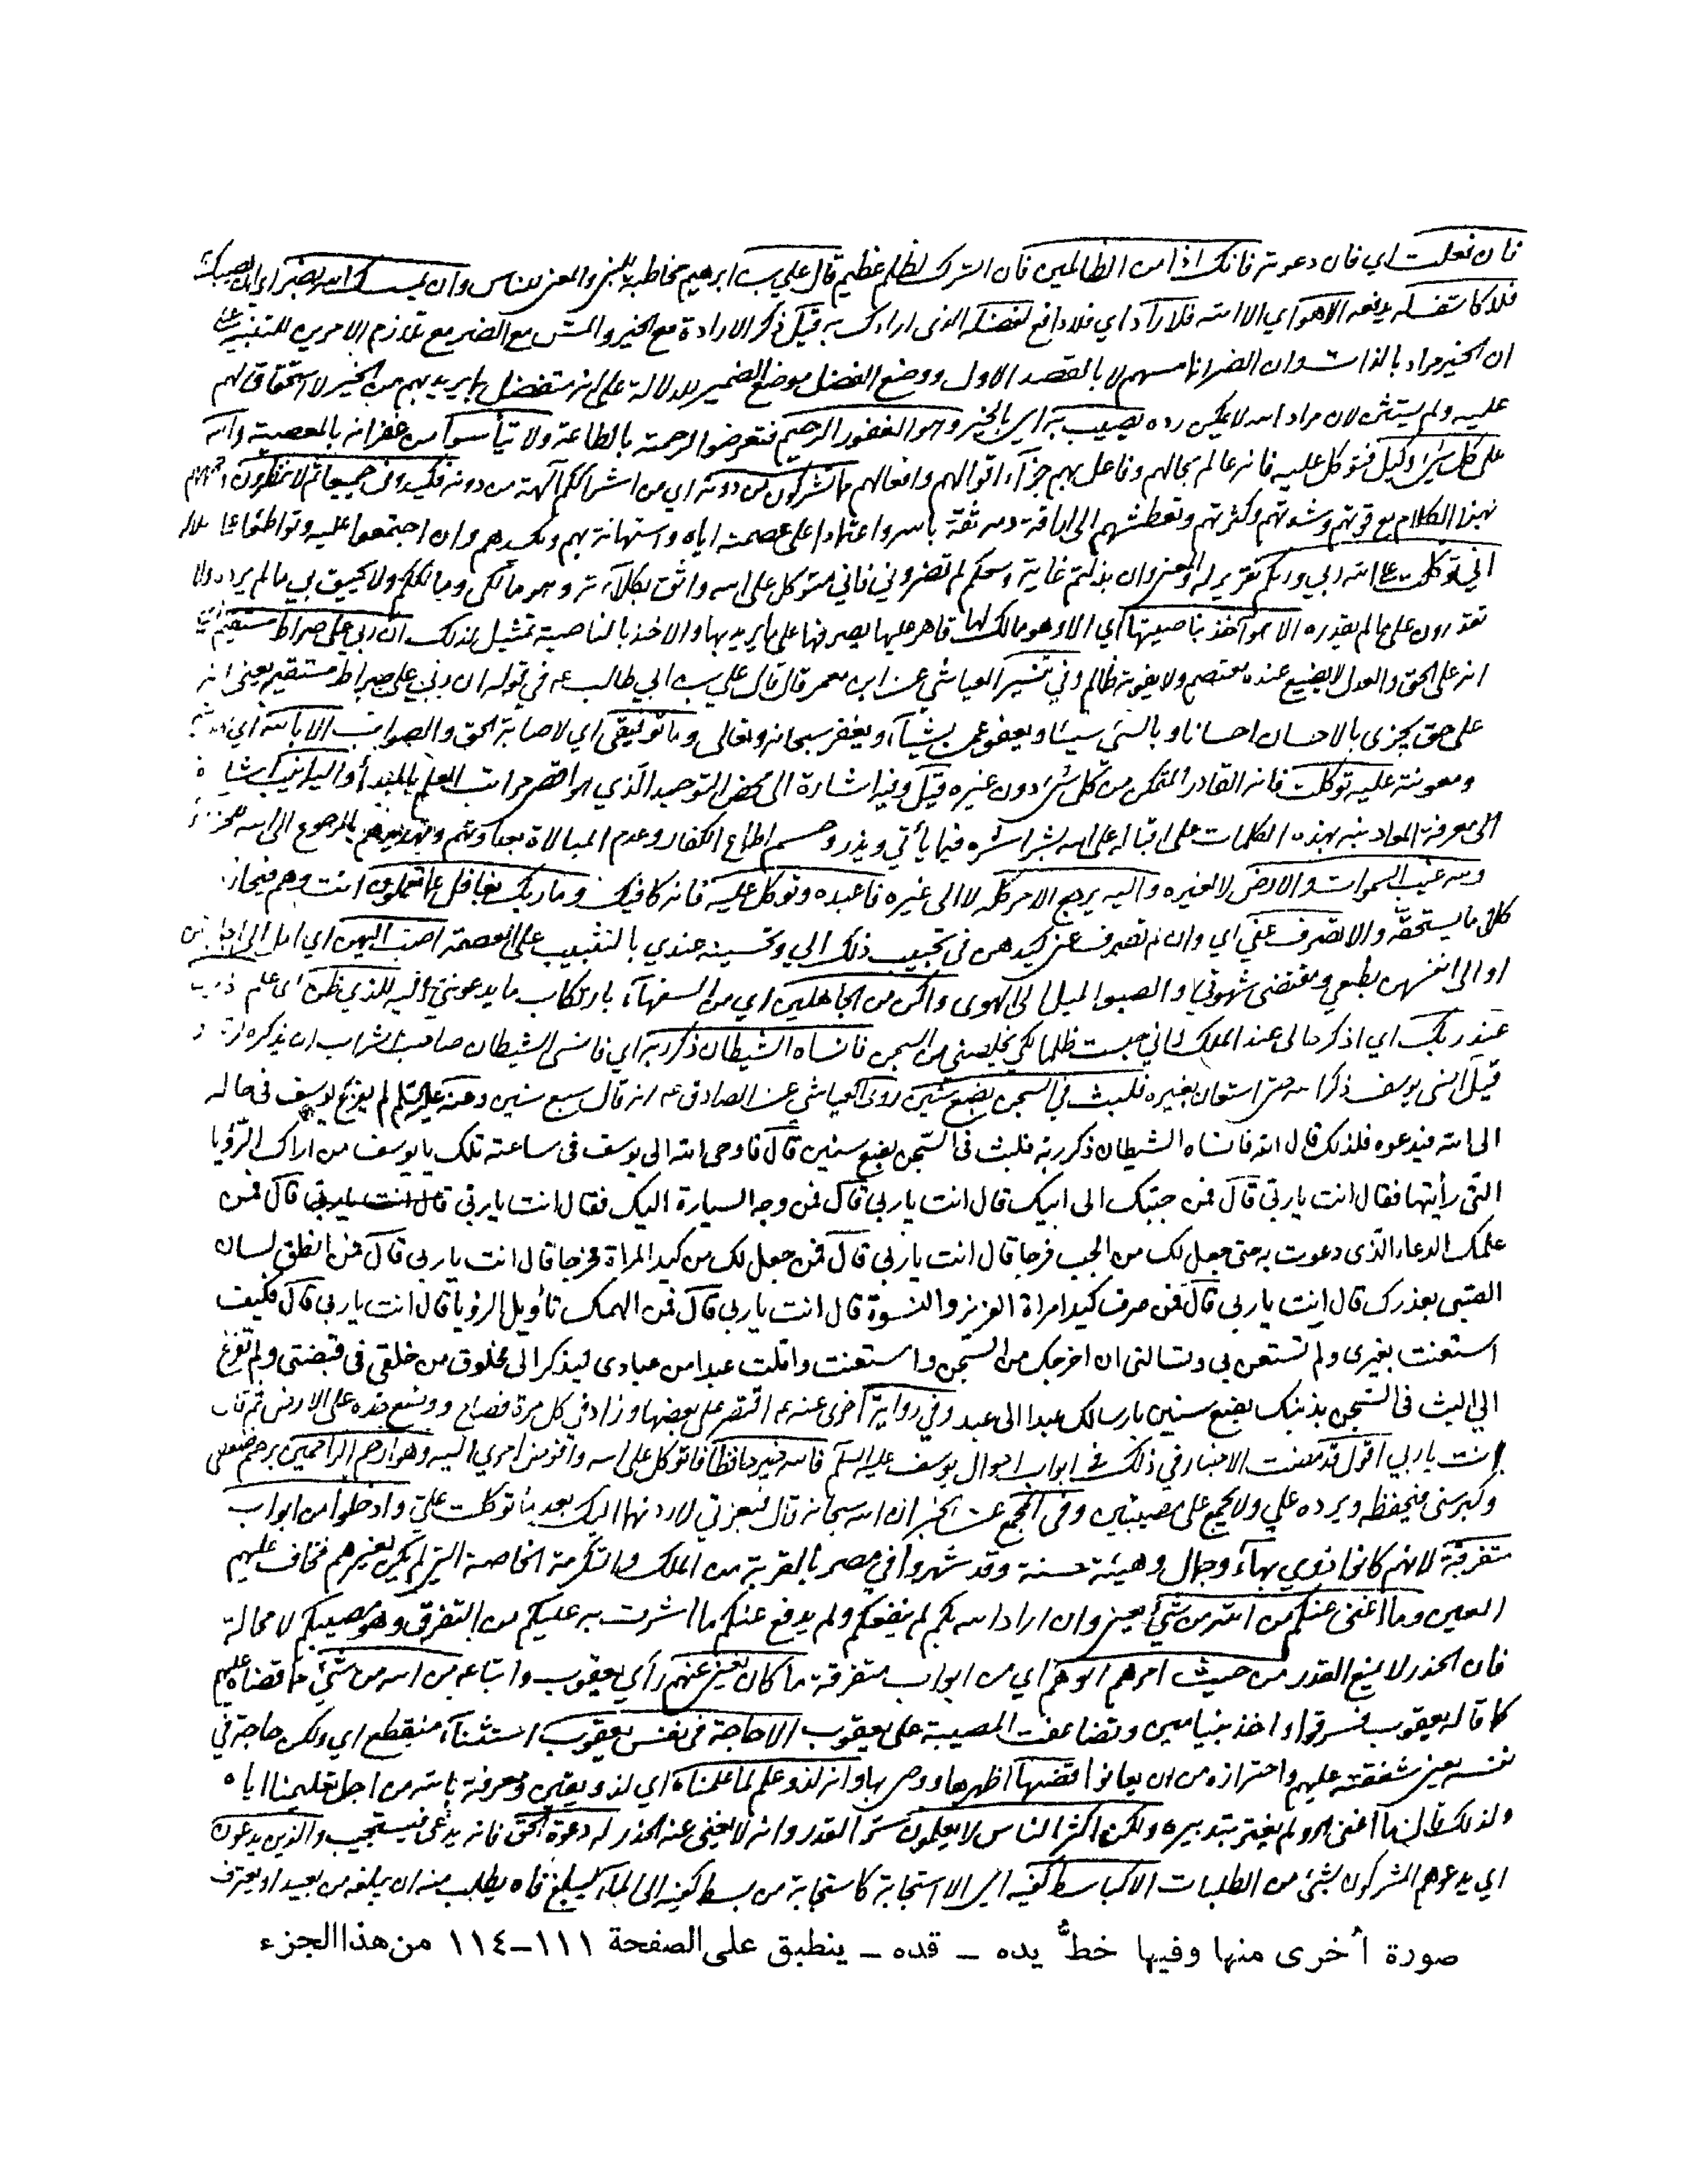 فان فعلت اي فان دعوته فانك اذا من الظالمين فان الشرك لظلم عظيم قال علي بن ابرهيم مخاطبة للنبي والمعنى للناس وان يمسسك الله بضر اي ان يصبك
فلا كاشف له يدفعه الا هو اي الا الله فلا رآد اي فلا دافع لفضله الذى ارادك به قيل ذكر الارادة مع الخير والمس مع الضر مع تلازم الامرين للتنبيه على
ان الخير مراد بالذات وان الضر انما مسهم لا بالقصد الاول ووضع الفضل موضع الضمير للدلالة على انه متفضل بما يريد بهم من الخير لا استحقاق لهم
عليه ولم يستثن لان مراد الله لا يمكن رده يصيب به اي بالخير وهو الغفور الرحيم فتعرضوا لرحمته بالطاعة ولا تيأسوا من غفرانه بالمعصية والله
على كل شئ وكيل فتوكل عليه فانه عالم بحالهم وفاعل بهم جزآء اقوالهم وافعالهم مما تشركون من دونه اي من اشراككم آلهة من دونه فكيدونى جميعا ثم لا تنظرون
بهذا الكلام مع قوتهم وشدتهم وكثرتهم وتعطشهم الى اراقة دمه ثقة بالله واعتمادا على عصمته اياه واستهانة بهم وبكيدهم وان اجتمعوا عليه وتواطئوا على
اني توكلت على الله ربي وربكم تقرير له والمعنى وان بذلتم غاية وسعكم لم تضروني فاني متوكل على الله واثق بكلآءته وهو مالكى ومالككم ولا يحيق بي ما لم يرده ولا
تقدرون على ما لم يقدره الا هو آخذ بناصيتها اي الا وهو مالك لها قاهر عليها يصرفها على ما يريد بها والاخذ بالناصية تمثيل لذلك ان ربي على صراط مستقيم اي
انه على الحق والعدل لا يضيع عنده معتصم ولا يفوته ظالم وفي تفسير العياشي عن ابن معمر قال قال علي بن ابي طالب عه في قوله ان ربي على صراط مستقيم يعنى انه
على حق يجزى بالاحسان احسانا وبالسئ سيئا ويعفو عمن يشآء ويغفر سبحانه وتعالى وما توفيقى اي لاصابة الحق والصواب الا بالله اي
ومعونته عليه توكلت فانه القادر المتمكن من كل شئ دون غيره قيل وفيه اشارة الى محض التوحيد الذي هو اقصى مراتب العلم بالمبدأ واليه انيب
الى معرفة المعاد نبه بهذه الكلمات على اقباله على الله بشراشره فيما يأتي ويذر وحسم اطماع الكفار وعدم المبالاة بعداوتهم وتهديدهم بالرجوع الى الله
ولله غيب السموات والارض لا لغيره واليه يرجع الامر كله لا الى غيره فاعبده وتوكل عليه فانه كافيك وما ربك بغافل عما تعملون انت وهم فيجازى
كلا ما يستحقه والا تصرف عني اي وان لم تصرف عنى كيدهن فى تحبيب ذلك الي وتحسينه عندي بالتثبيت على العصمة اصب اليهن اي امل الى
او الى انفسهن بطبعي ومقتضى شهوتي والصبو الميل الى الهوى واكن من الجاهلين اي من السفهآء بارتكاب ما يدعونني اليه للذي ظن اى علم
عند ربك اي اذكر حالى عند الملك اني حبست ظلما لكي يخلصني من السجن فانساه الشيطان ذكر ربه اي فانسى الشيطان صاحب الشراب ان يذكره
قيل انسى يوسف ذكر الله حتى استعان بغيره فلبث في السجن بضع سنين روى العياشي عن الصادق عه انه قال سبع سنين وعنه عليه السلم لم يفزع يوسف فى حاله
الى الله فيدعوه فلذلك قال الله فانساه الشيطان ذكر ربه فلبث فى السجن بضع سنين قال فاوحى الله الى يوسف فى ساعته تلك يا يوسف من اراك الرؤيا
التى رأيتها فقال انت يا ربي قال فمن حببك الى ابيك قال انت يا ربي قال فمن وجه السيارة اليك فقال انت يا ربي قال انت يا ربي قال فمن
علمك الدعاء الذى دعوت به حتى جعل لك من الجب فرجا قال انت يا ربي قال فمن جعل لك من كيد المراة مخرجا قال انت يا ربي قال فمن انطق لسان
الصبى بعذرك قال انت يا ربي قال فمن صرف كيد امراة العزيز والنسوة قال انت يا ربي قال فمن الهمك تاويل الرؤيا قال انت يا ربي قال فكيف
استعنت بغيرى ولم تستعن بي وتسالنى ان اخرجك من السجن واستعنت واملت عبدا من عبادى ليذكرك الى مخلوق من خلقى فى قبضتى ولم تفزع
الي البث فى السجن بذنبك بضع سنين بارسالك عبدا الى عبد وفي رواية اخرى عنه عه اقتصر على بعضها وزاد في كل مرة فصاح ووضع خده على الارض ثم قال
انت يا ربي اقول قد مضت الاخبار في ذلك فى ابواب احوال يوسف عليه السلم فالله خير حافظا فاتوكل على الله وافوض امري اليه وهو ارحم الراحمين يرحم ضعفى
وكبر سنى فيحفظه ويرده علي ولا يجمع على مصيبتين وفى المجمع عن الخبر ان الله سبحانه قال فبعزتي لاردنهما اليك بعد ما توكلت علي وادخلوا من ابواب
متفرقة لانهم كانوا ذوي بهآء وجمال وهيئة حسنة وقد شهروا في مصر بالقربة من الملك والتكرمة الخاصة التي لم يكن لغيرهم فخاف عليهم
العين وما اغنى عنكم من الله من شئ يعنى وان اراد الله بكم لم ينفعكم ولم يدفع عنكم ما اشرت به عليكم من التفرق وهو مصيبكم لا محالة
فان الحذر لا يمنع القدر من حيث امرهم ابوهم اي من ابواب متفرقة ما كان يغنى عنهم رأي يعقوب واتباعه من الله من شئ مما قضاه عليهم
كما قاله يعقوب فسرقوا واخذ بنيامين وتضاعفت المصيبة على يعقوب الا حاجة فى نفس يعقوب استثنآء منقطع اي ولكن حاجة في
نفسه يعنى شفقته عليهم واحترازه من ان يعانوا قضيها اظهرها ووصى بها وانه لذو علم لما علمناه اي لذو يقين ومعرفة بالله من اجل تعليمنا اياه
ولذلك قال ما اغنى ولم يغتر بتدبيره ولكن اكثر الناس لا يعلمون سر القدر وانه لا يغنى عنه الحذر له دعوة الحق فانه يدعى فيستجيب والذين يدعون
اي يدعوهم المشركون بشئ من الطلبات الا كباسط كفيه اي الا استجابة كاستجابة من بسط كفيه الى المآء ليبلغ فاه يطلب منه ان يبلغه من بعيد او يغترف
صورة أخرى منها وفيها خطُّ يده ــ قده ــ ينطبق على الصفحة ١١١ــ١١٤ من هذا الجزء